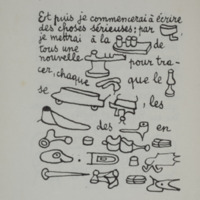 Et puis je commencerai à écrire
des choses sérieuses; par
je mettrai à la de
tous une
nouvelle pour tra-
cer, chaque que le
se , les
des en